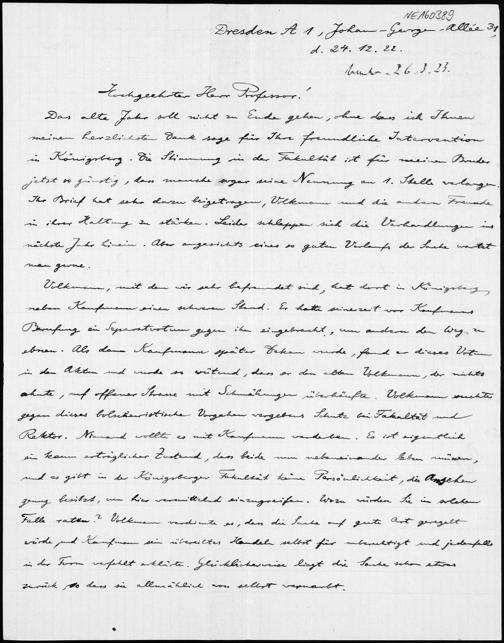 NEA60389
Dresden A 1, Johann-Georgen-Allee 31,
d. 24.12.22.
26.3.23.
Hochgeehrter Herr Professor!
Das alte Jahr soll nicht zu Ende gehen, ohne dass ich Ihnen
meinen herzlichsten Dank sage für Ihre freundliche Intervention
in Königsberg. Die Stimmung in der Fakultät ist für meinen Bruder
jetzt so günstig, dass manche sogar seine Nennung an 1. Stelle verlangen.
Ihr Brief hat sehr dazu beigetragen, Volkmann und die andern Freunde
in ihrer Haltung zu stärken. Leider schleppen sich die Verhandlungen ins
nächste Jahr hinein. Aber angesichts eines so guten Verlaufs der Sache wartet
man gerne.
Volkmann, mit dem wir sehr befreundet sind, hat dort in Königsberg
neben Kaufmann einen schweren Stand. Er hatte seinerzeit vor Kaufmanns
Berufung ein Separatvotum gegen ihn eingebracht, um andern den Weg zu
ebnen. Als dann Kaufmann später Dekan wurde, fand er dieses Votum
in den Akten und wurde so wütend, dass er den alten Volkmann, der nichts
ahnte, auf offener Strasse mit Schmähungen überhäufte. Volkmann suchte
gegen dieses bolschewistische Vorgehen vergebens Schutz bei Fakultät und
Rektor. Niemand wollte es mit Kaufmann verderben. Es ist eigentlich
ein kaum erträglicher Zustand, dass beide nun nebeneinander leben müssen,
und es gibt in der Königsberger Fakultät keine Persönlichkeit, die Ansehen
genug besitzt, um hier vermittelnd einzugreifen. Wozu würden Sie in solchem
Falle raten? Volkmann verdiente es, dass die Sache auf gute Art geregelt
würde, und Kaufmann sein übereiltes Handeln selbst für unberechtigt und jedenfalls
in der Form verfehlt erklärte. Glücklicherweise liegt die Sache schon etwas
zurück, so dass sie allmählich von selbst vernarbt.